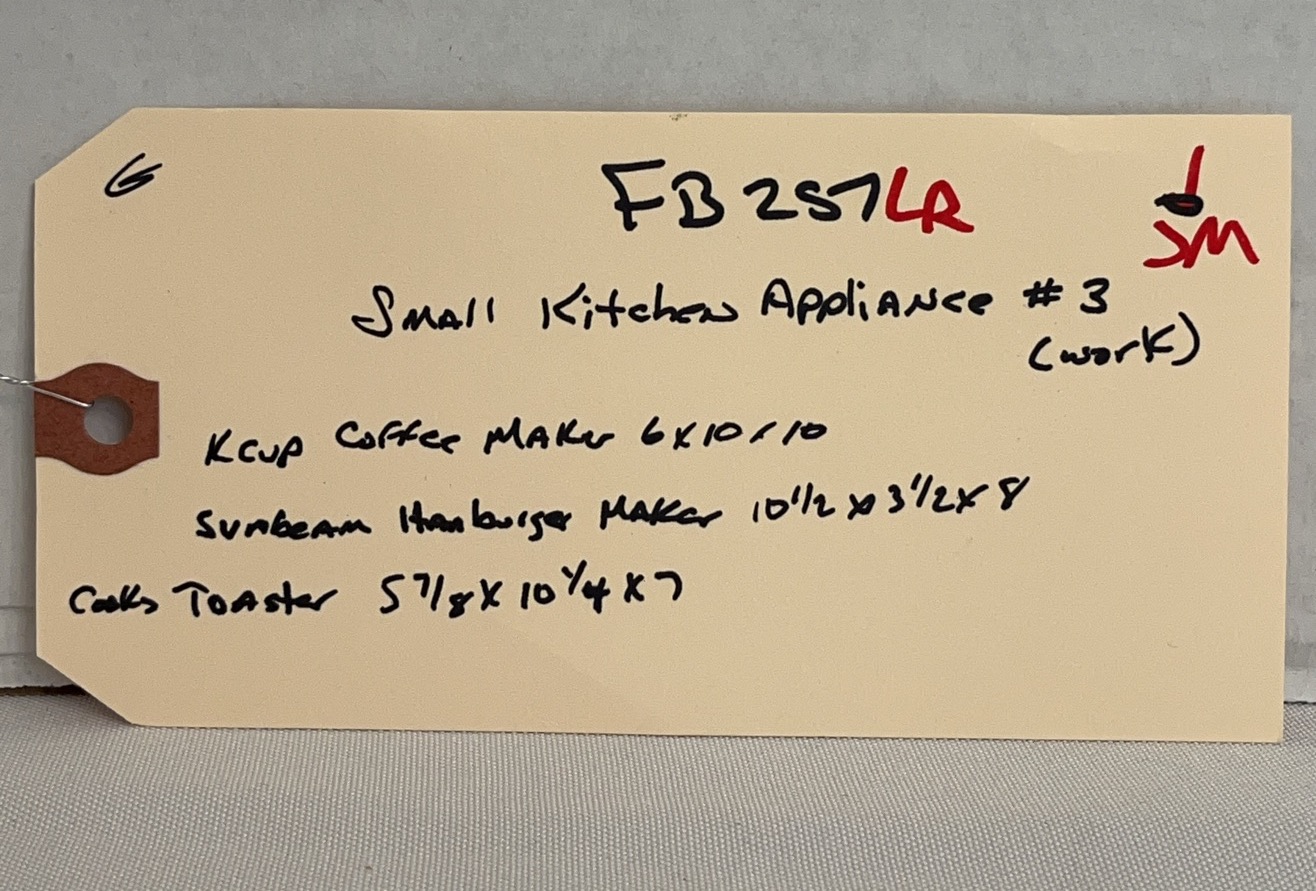 G
FB257LR
SM
Small Kitchen Appliance #3
(work)
Kcup Coffee Maker 6x10x10
Sunbeam Hamburger Maker 10 1/2 x 3 1/2 x 8
Cooks Toaster 5 7/8 x 10 1/4 x 7